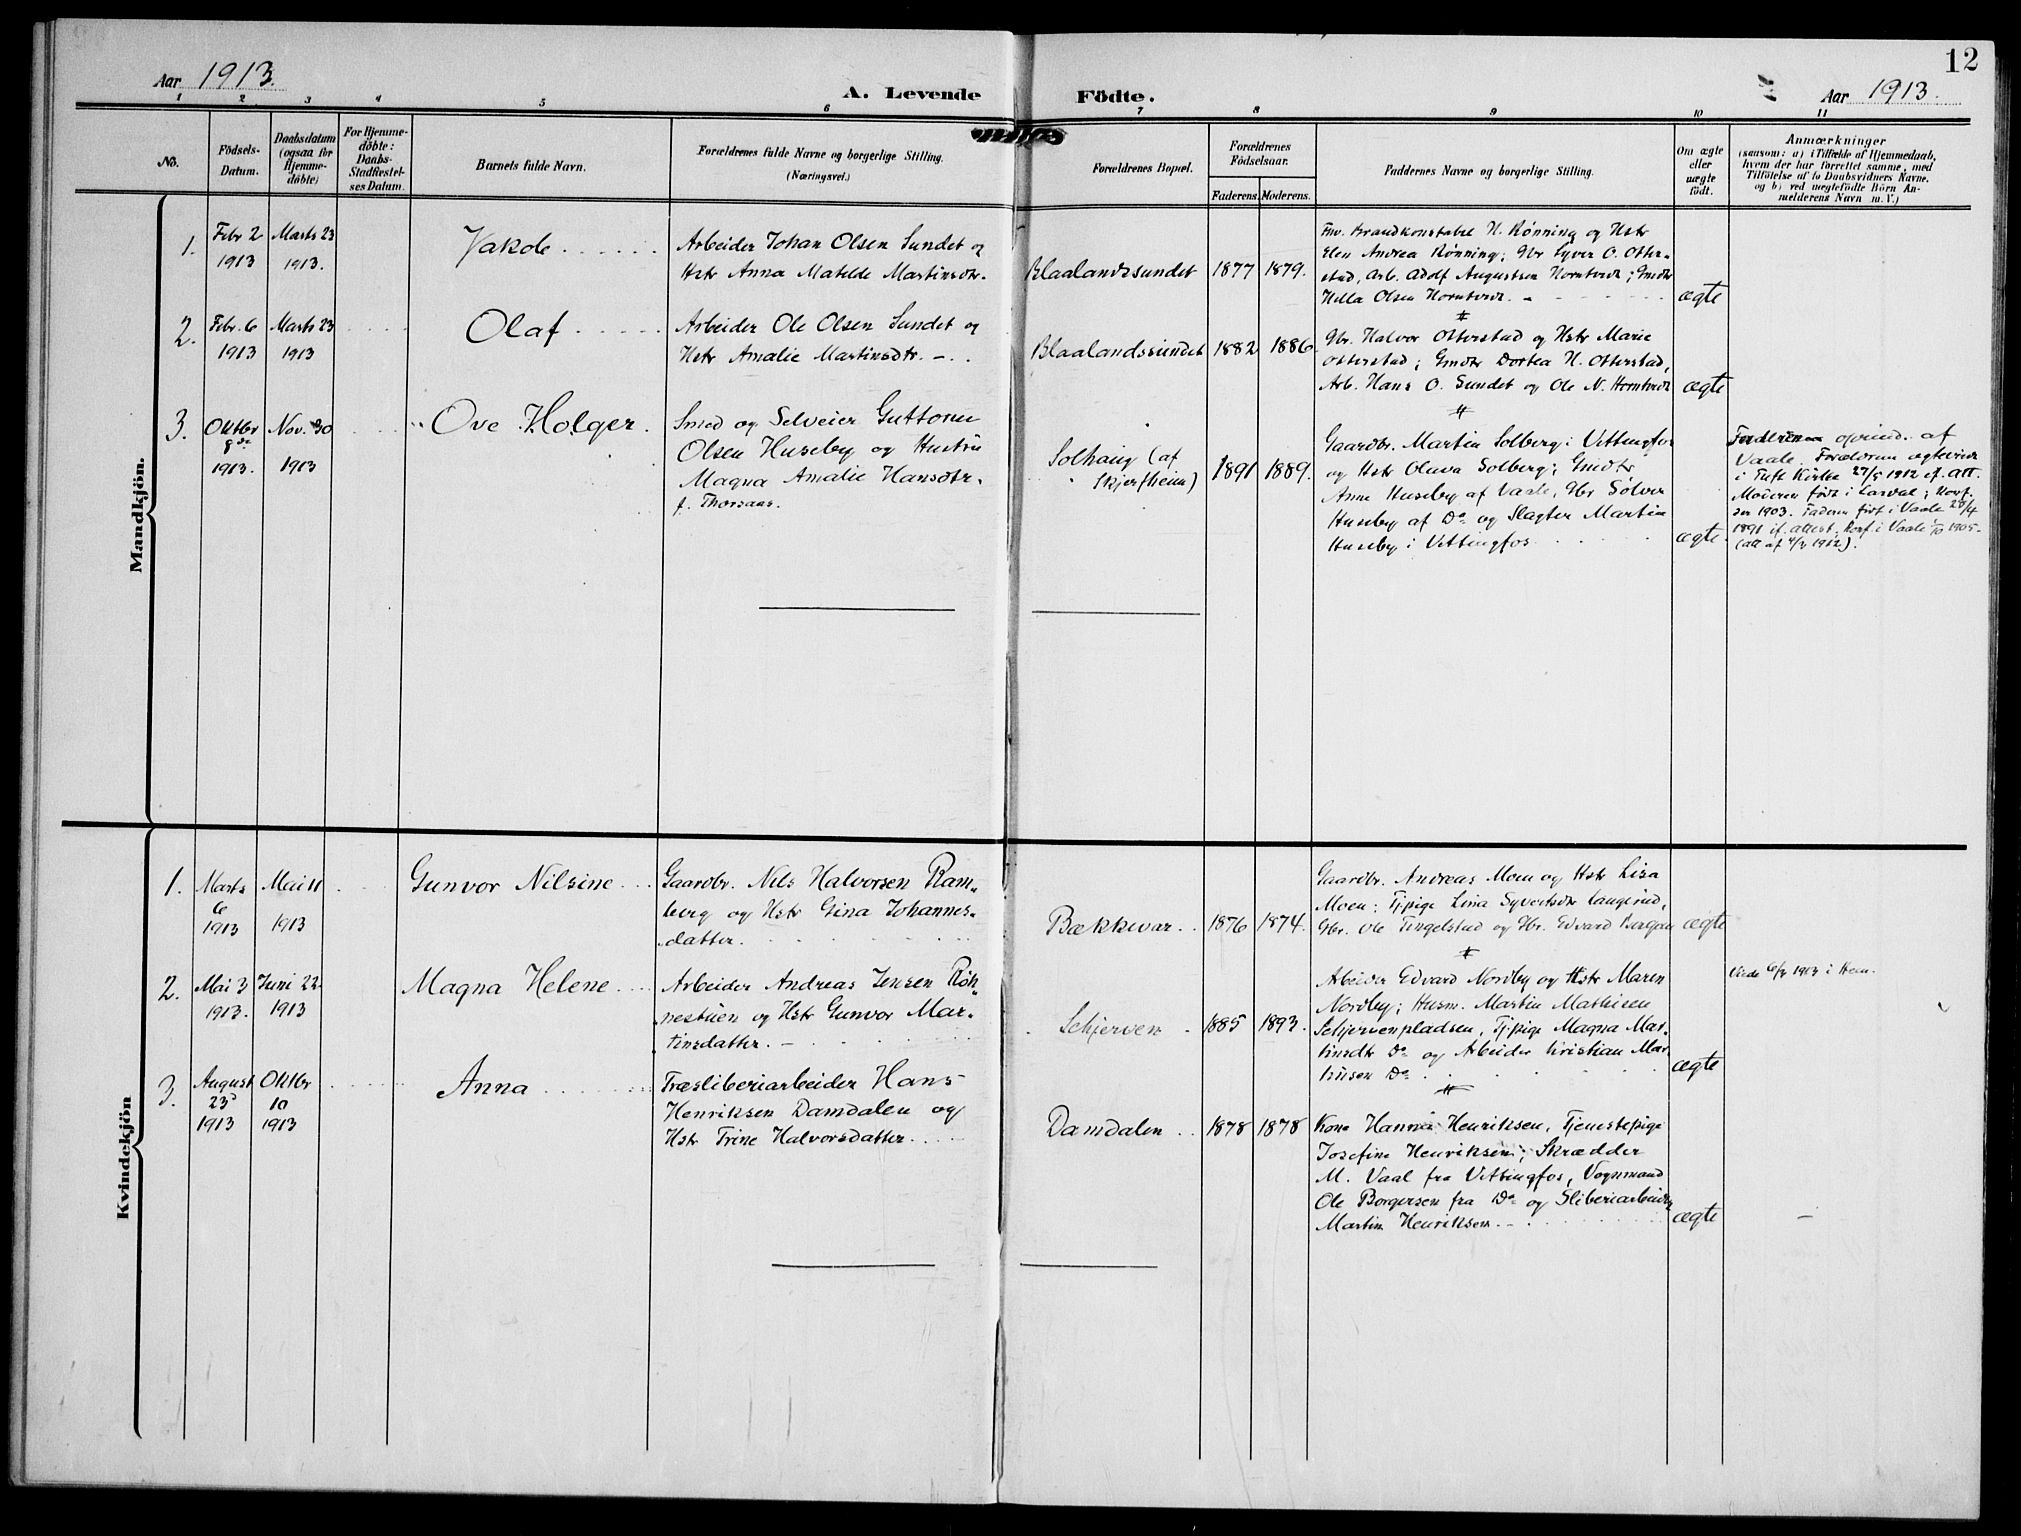 12
Aar 1913.
A. Levende
Födte.
Aar 1913.
1 2 3 4 5 6 7 8 9 10 11
No.
Födsels-
Datum.
Daabsdatum
(ogsaa for
Hjemme-
döbte)
For Hjemme-
döbte:
Daabs-
Stadfæstel-
ses Datum.
Barnets fulde Navn.
Forældrenes fulde Navne og borgerlige Stilling.
(Næringsvei.)
Forældrenes Bopæl.
Forældrenes
Födselsaar.
Faderens. Moderens.
Faddernes Navne og borgerlige Stilling.
Om ægte
eller
uægte
födt.
Anmærkninger
(saasom: a) i Tilfælde af Hjemmedaab,
hvem der har forrettet samme, med
Tilföielse af to Daabsvidners Navne.
og b) ved uægtefödte Börn An-
melderens Navn m. V.)
Mandkjön.
1.
Febr 2
1913
Marts 23
1913.
Jakob
Arbeider Johan Olsen Sundet og
Hstr Anna Matilde Martinsdtr.
Blaalandssundet
1877 1879.
Fhv. Brandkonstabel N. Rønning og Hstr
Elen Andrea Rønning; Gbr Syver O. Otter-
stad, Arb. Adolf Augustsen Horntvedt; Gmdtr
Hella Olsen Horntvedt.
ægte
2.
Febr. 6
1913
Marts 23
1913
Olaf
Arbeider Ole Olsen Sundet og
Hstr Amalie Martinsdtr.
Blaalandssundet
1882 1886
Gbr. Halvor Otterstad og Hstr Marie
Otterstad; Gmdtr Dortea H. Otterstad,
Arb. Hans O. Sundet og Ole N. Horntvedt
ægte
3.
Oktbr
9de
1913.
Nov. 30
1913
Ove Holger.
Smed og Selveier Guttorm
Olsen Huseby og Hustru
Magna Amalie Hansdtr.
f. Thorsaas.
Solhaug (af
Skjerfheim)
1891 1889.
Gaardbr. Martin Solberg i Vittingfos
og Hstr Oluva Solberg; Gmdtr
Anne Huseby af Vaale, Gbr Sølver
Huseby af Do og Slagter Martin
Huseby i Vittingfos
ægte
Faderen oprind. af
Vaale. Forældrene ægteviede
i Tuft Kirke 27/5 1912 if. att.
Moderen født i Larvik; Konf.
der 1903. Faderen født i Vaale 28/4
1891 if. attest. Konf. i Vaale 1/10 1905.
(att af 4/3 1912).
Kvindekjön
1.
Marts
6
1913
Mai 11
1913
Gunvor Nilsine
Gaardbr. Nils Halvorsen Ram-
berg og Hstr Gina Johannes-
datter.
Bækkevar.
1876 1874.
Gaardbr. Andreas Moen og Hstr Lisa
Moen; Tj.pige Lina Syvertsdtr Langerud,
Gbr. Ole Tingelstad og Gbr. Edvard Bergan
ægte
2.
Mai 3
1913.
Juni 22
1913
Magna Helene
Arbeider Andreas Jensen Røn-
nestuen og Hstr Gunvor Mar-
tinsdatter.
Schjerven
1885 1893.
Abeider Edvard Nordby og Hstr Maren
Nordby; Husm. Martin Mathisen
Schjervenpladsen, Tj.pige Magna Mar-
tinsdtr Do og Arbeider Kristian Mar-
tinsen Do
ægte
Viede 6/4 1913 i Hem.
3.
August
23de
1913
Oktbr
10
1913
Anna
Træsliberiarbeider Hans
Henriksen Damdalen og
Hstr Trine Halvorsdatter.
Damdalen
1878 1878
Kone Hanna Henriksen, Tjenestepige
Josefine Henriksen; Skrædder
M. Vaal fra Vittingfos, Vognmand
Ole Borgersen fra Do og Sliberiarbeider
Martin Henriksen.
ægte